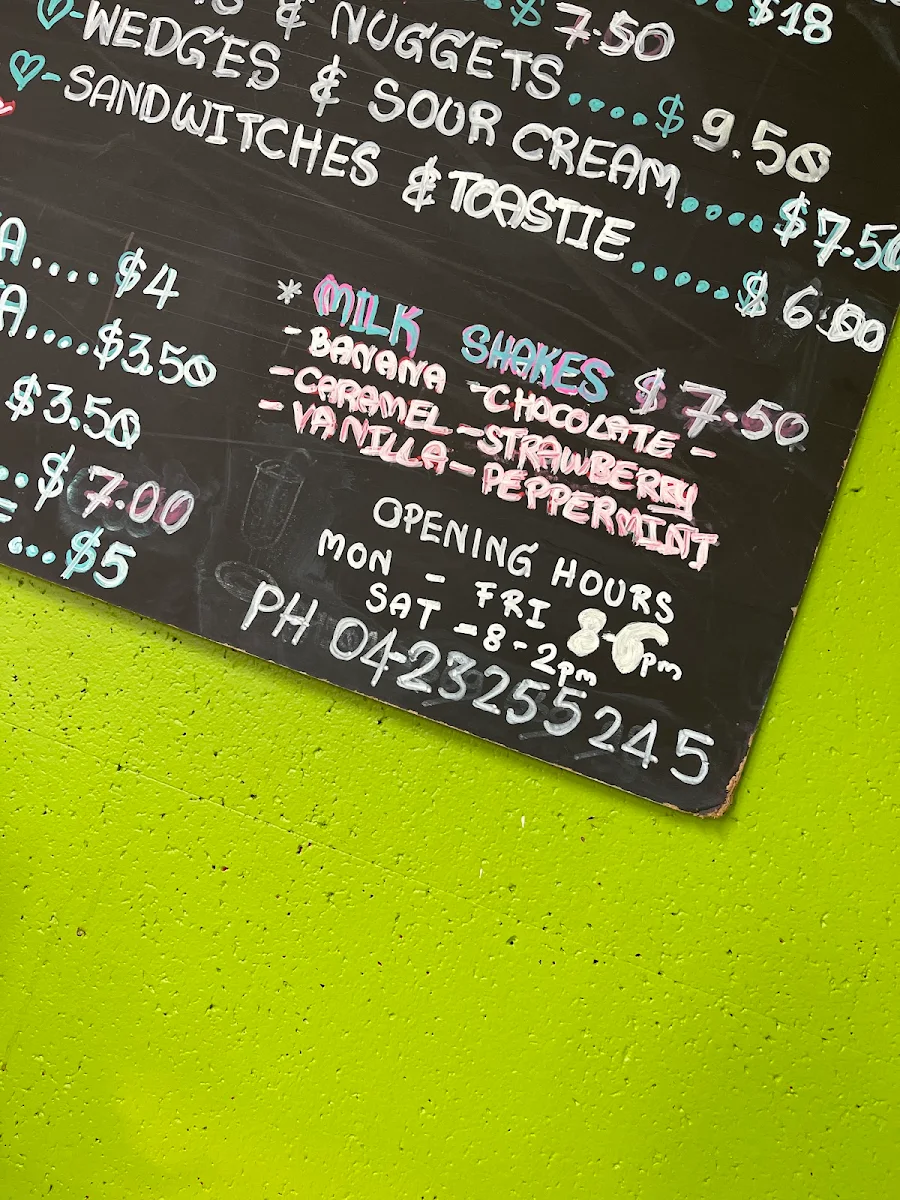 $18
& NUGGETS....$ 7.50
WEDGES & SOUR CREAM....$ 9.50
SANDWITCHES & TOASTIE....$7.50
.....$ 6.00
A....$4
A....$3.50
$3.50
..$ 7.00
...$5
* MILK SHAKES $ 7.50
- BANANA - CHOCOLATE -
- CARAMEL - STRAWBERRY
- VANILLA - PEPPERMINT
OPENING HOURS
MON - FRI 8-6pm
SAT - 8-2pm
PH 04-23255245